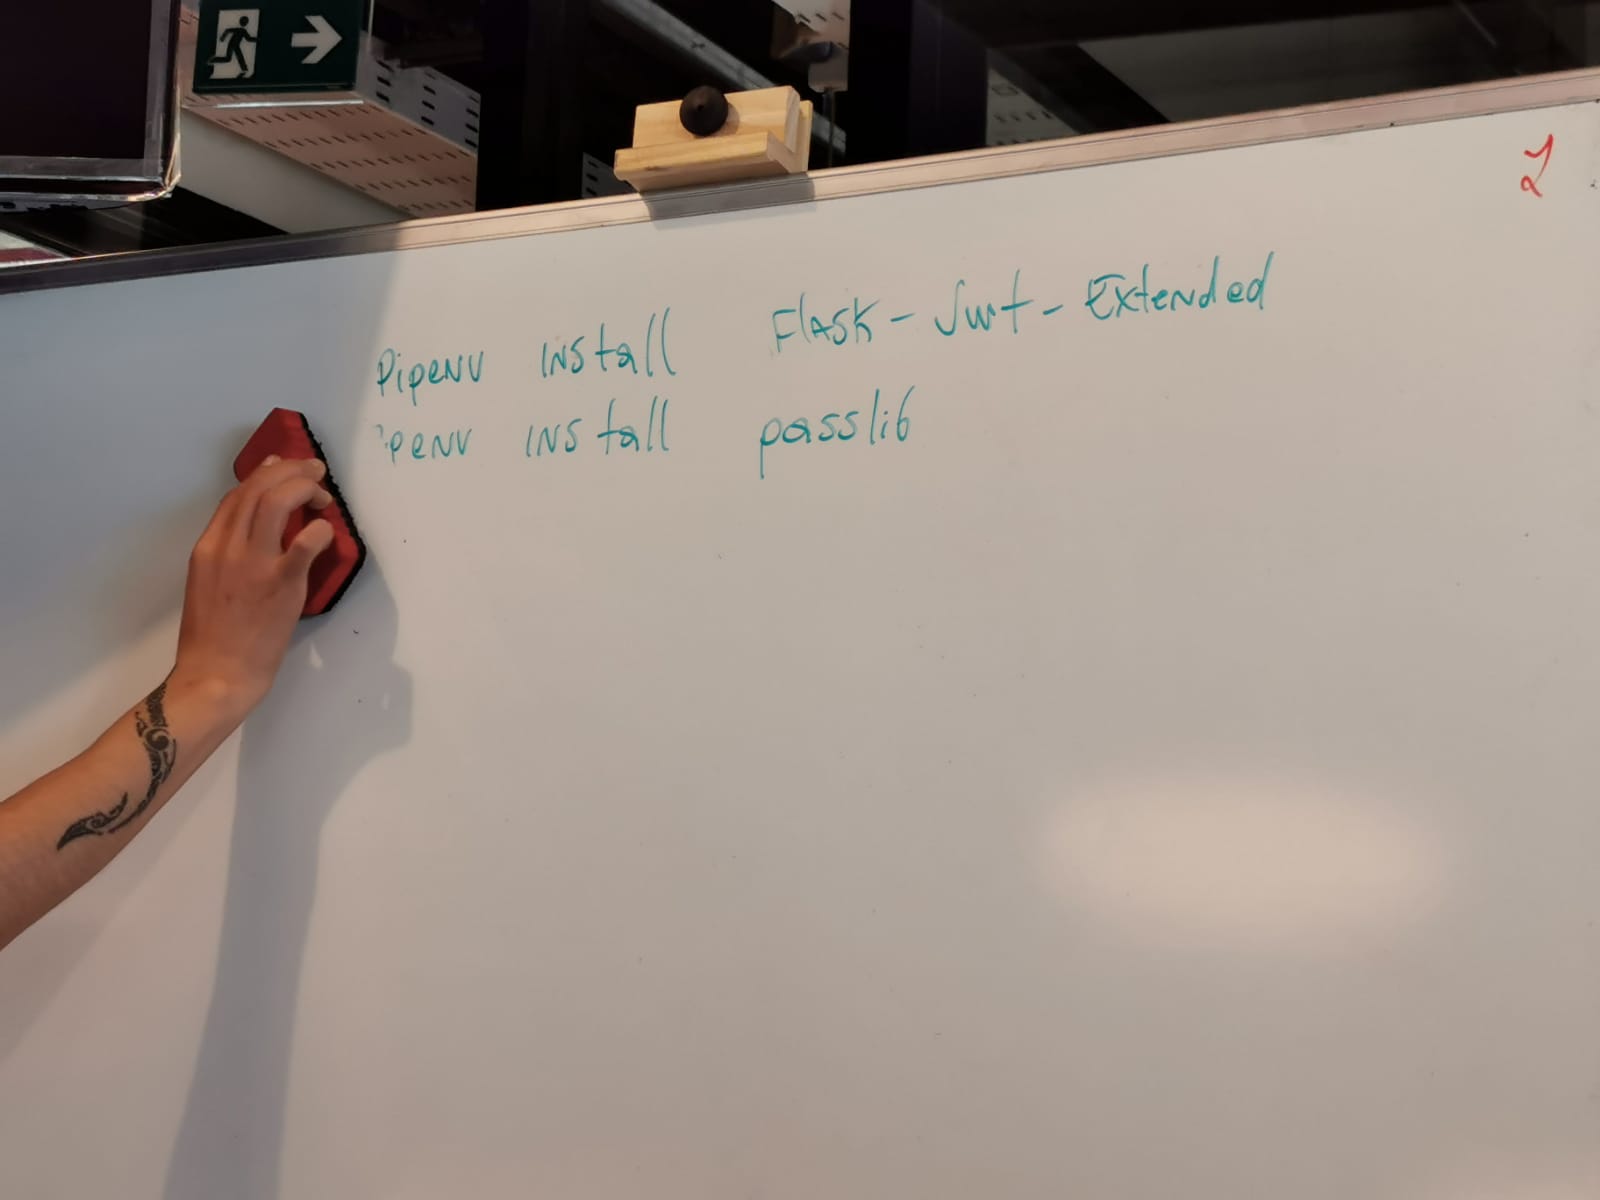 Pipenv install Flask-Jwt-Extended
penv install passlib